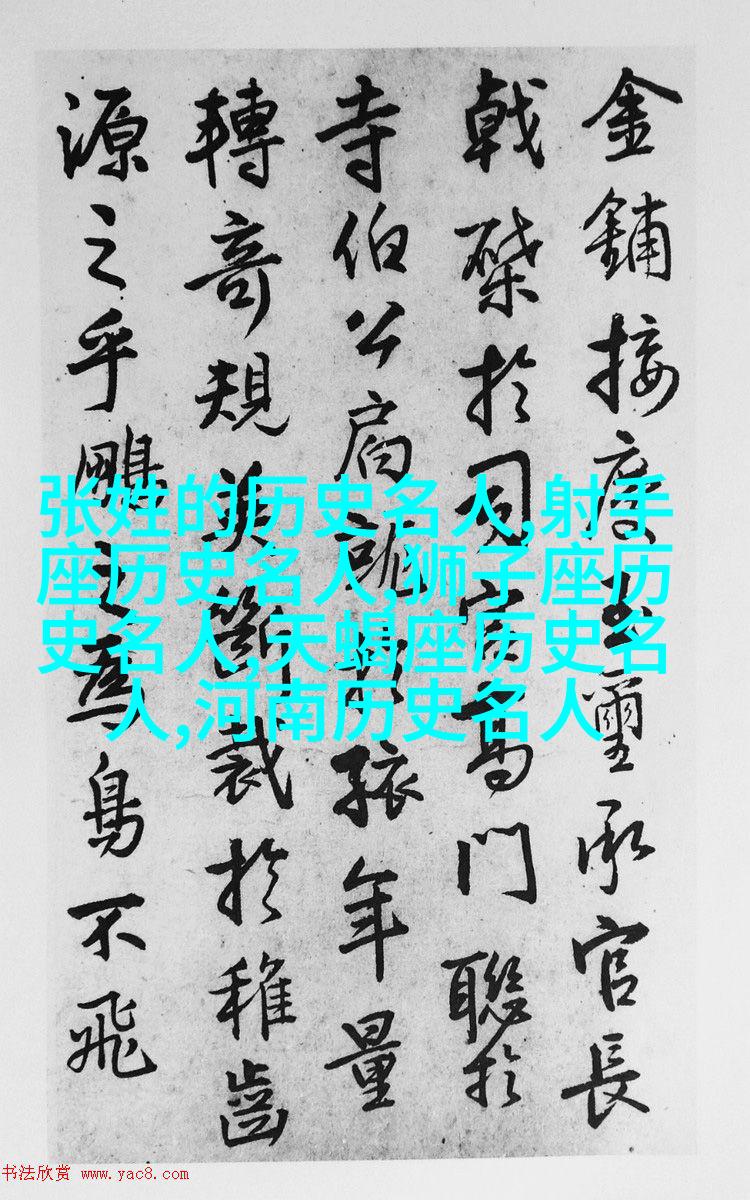 金鋪接慶璽承官長
戟於司官高門聯於
寺伯公扃孩年量
轉奇規裁於稚齒
源之乎鳥不飛
张姓的历史名人,射手
座历史名人,狮子座历
史名人,天蝎座历史名
人,河南历史名人
书法欣赏 www.yac8.com